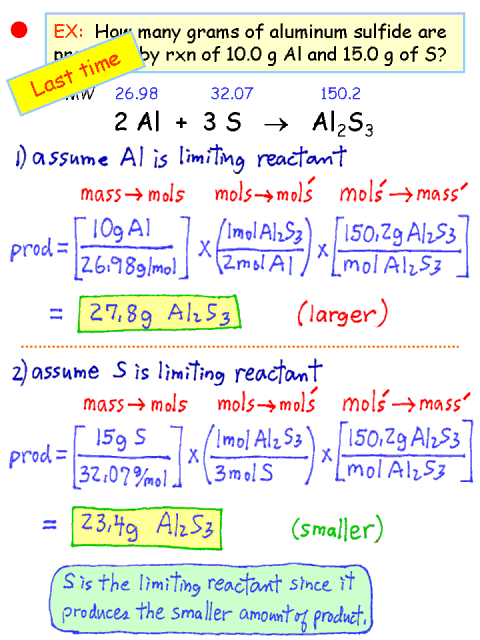 EX: How many grams of aluminum sulfide are
by rxn of 10.0 g Al and 15.0 g of S?
Last time
MW 26.98 32.07 150.2
2 Al + 3 S → Al₂S₃
1) assume Al is limiting reactant
mass → mols mols → mols′ mols′ → mass′
prod = [10g Al / 26.98g/mol] × (1mol Al₂S₃ / 2mol Al) × [150.2g Al₂S₃ / mol Al₂S₃]
= 27.8g Al₂S₃ (larger)
2) assume S is limiting reactant
mass → mols mols → mols′ mols′ → mass′
prod = [15g S / 32.07g/mol] × (1mol Al₂S₃ / 3mol S) × [150.2g Al₂S₃ / mol Al₂S₃]
= 23.4g Al₂S₃ (smaller)
S is the limiting reactant since it
produces the smaller amount of product.